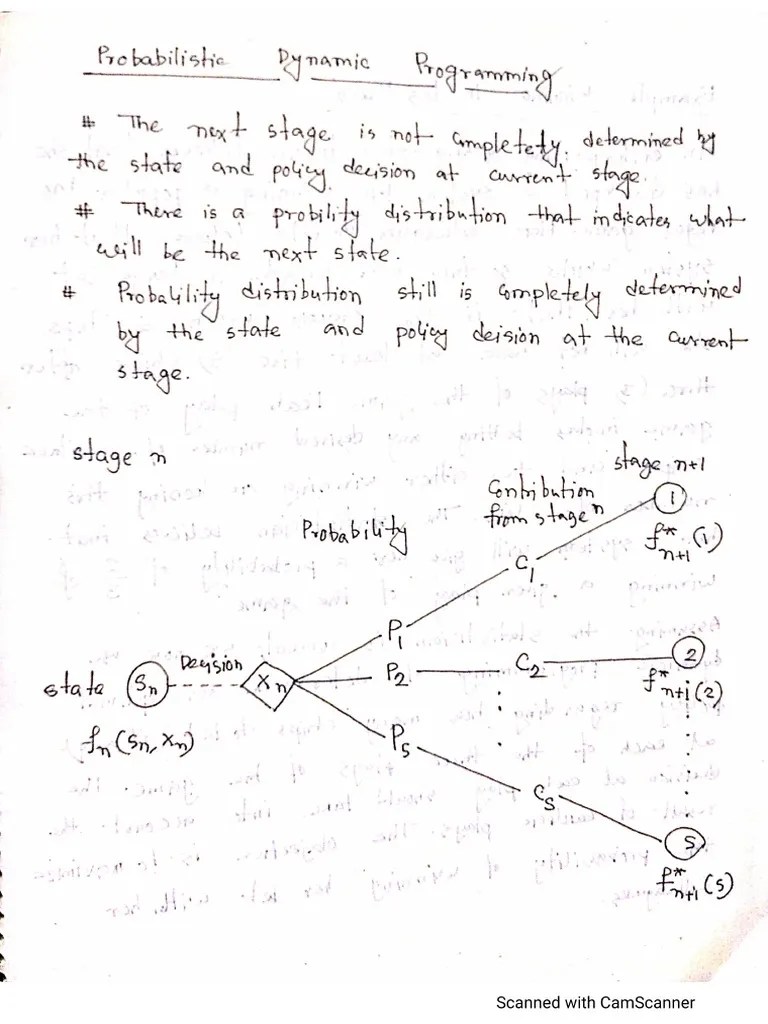 Probabilistic Dynamic Programming
# The next stage is not completely determined by
the state and policy decision at current stage.
# There is a probility distribution that indicates what
will be the next state.
# Probability distribution still is completely determined
by the state and policy deision at the current
stage.
stage n
stage n+1
Contribution
from stage n
Probability
1
f*n+1(1)
C1
P1
Decision
state Sn Xn P2 C2 2
f*n+1(2)
fn(Sn, Xn)
Ps
Cs
S
f*n+1(S)
Scanned with CamScanner